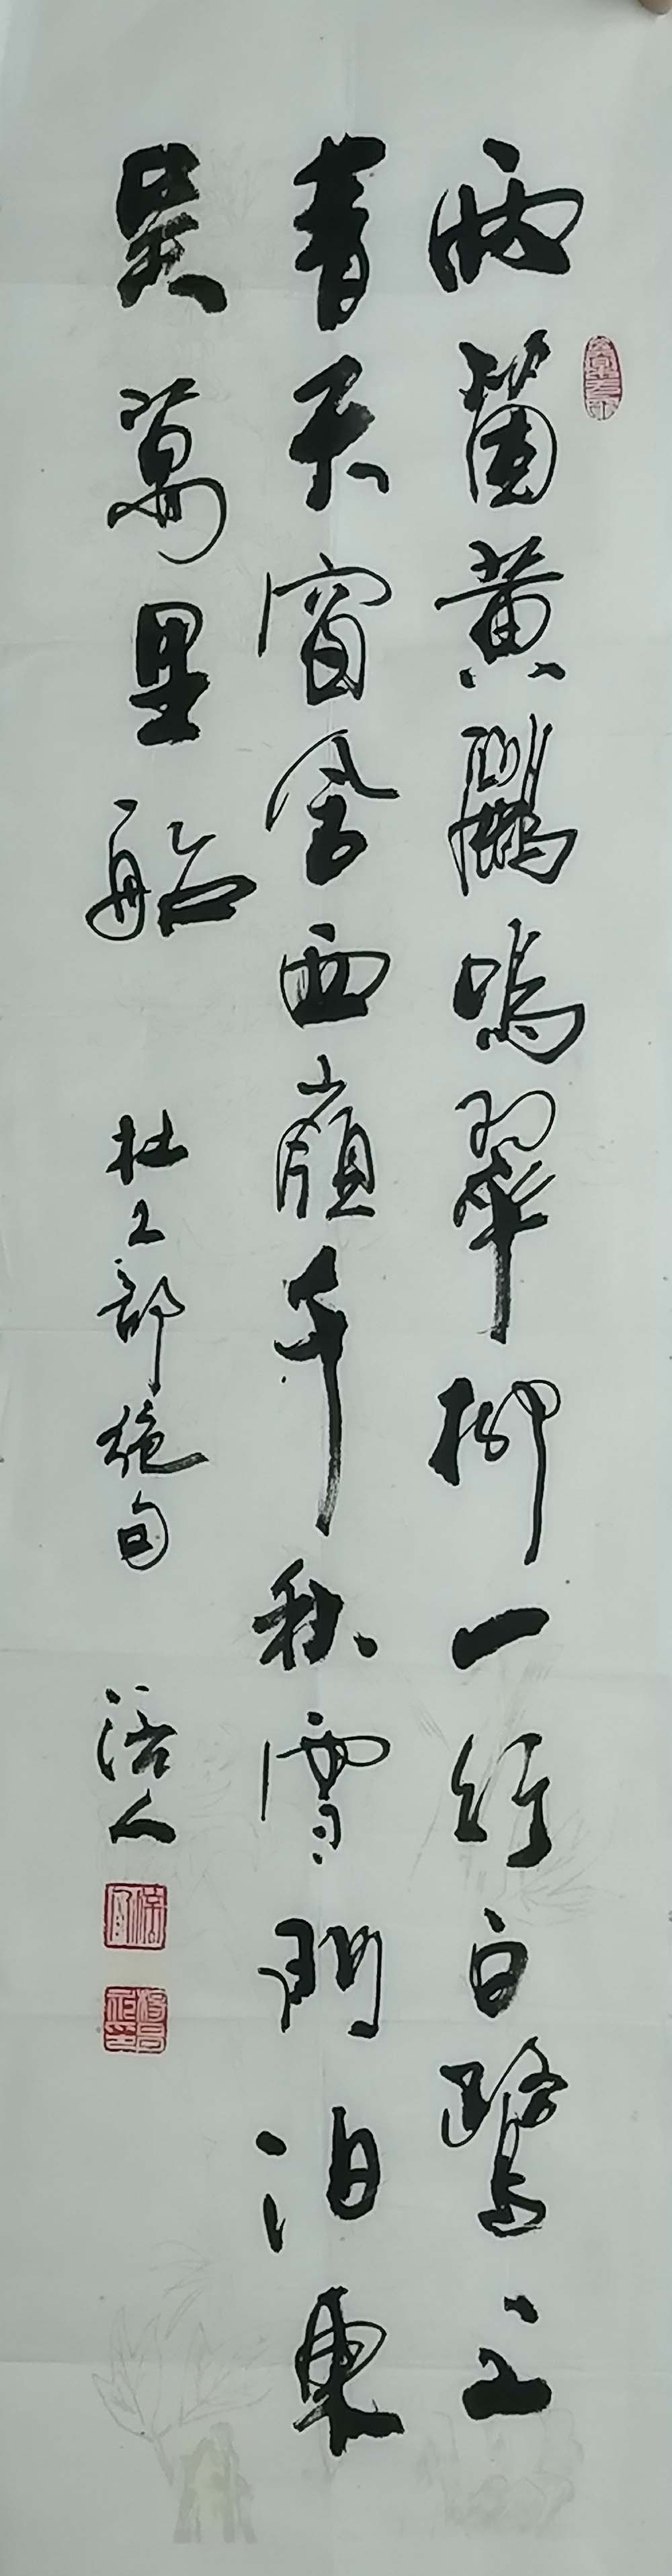 两箇黄鸝鳴翠柳一行白鷺上
青天窗含西嶺千秋雪門泊東
吳萬里船
杜工部絶句
浯人